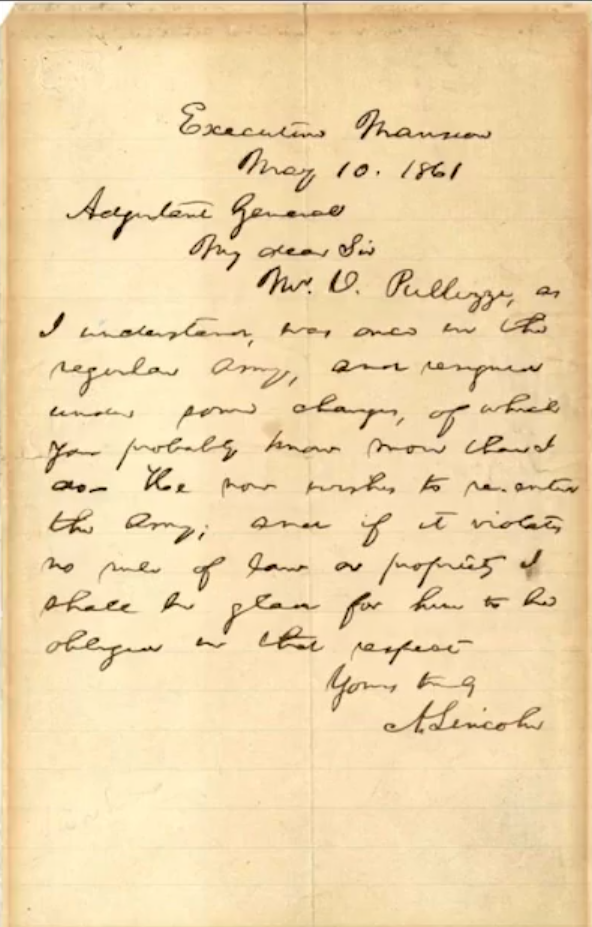 Executive Mansion
May 10. 1861
Adjutant General
My dear Sir
Mr. V. Pulizzi, as
I understand, was once in the
regular Army, and resigned
under some charges, of which
you probably know more than I
do— He now wishes to re-enter
the Army; and if it violates
no rule of law or propriety I
shall be glad for him to be
obliged in that respect
Yours truly
A. Lincoln